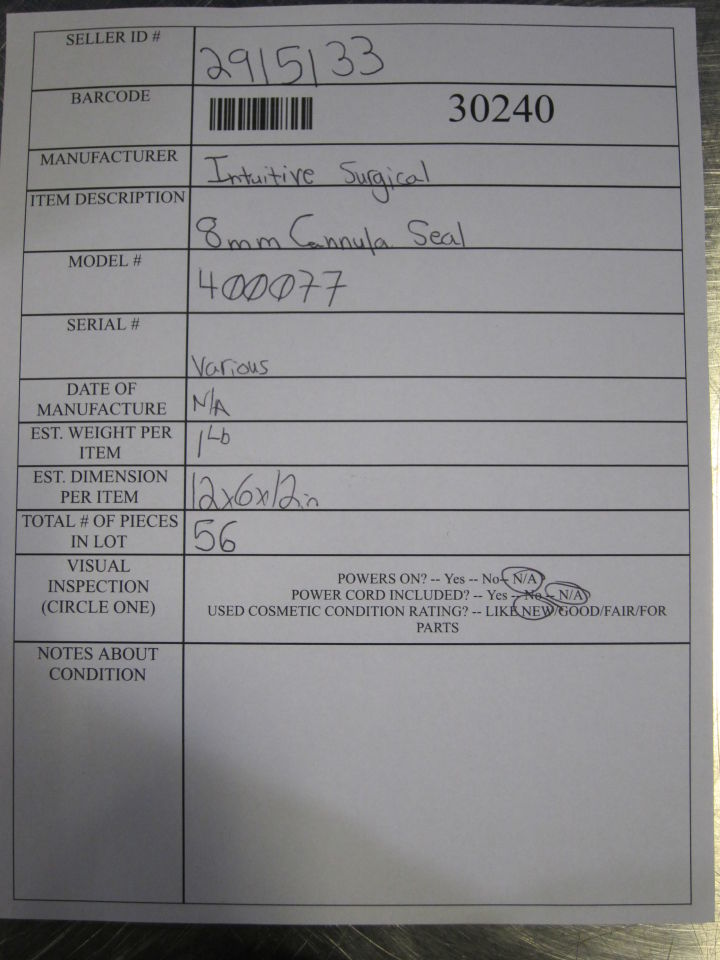 SELLER ID # 2915133
BARCODE 30240
MANUFACTURER Intuitive Surgical
ITEM DESCRIPTION 8mm Cannula Seal
MODEL # 400077
SERIAL # Various
DATE OF
MANUFACTURE N/A
EST. WEIGHT PER
ITEM 1 Lb
EST. DIMENSION
PER ITEM 12x6x12in
TOTAL # OF PIECES
IN LOT 56
VISUAL
INSPECTION
(CIRCLE ONE)
POWERS ON? -- Yes -- No -- N/A
POWER CORD INCLUDED? -- Yes -- No -- N/A
USED COSMETIC CONDITION RATING? -- LIKE NEW/GOOD/FAIR/FOR
PARTS
NOTES ABOUT
CONDITION